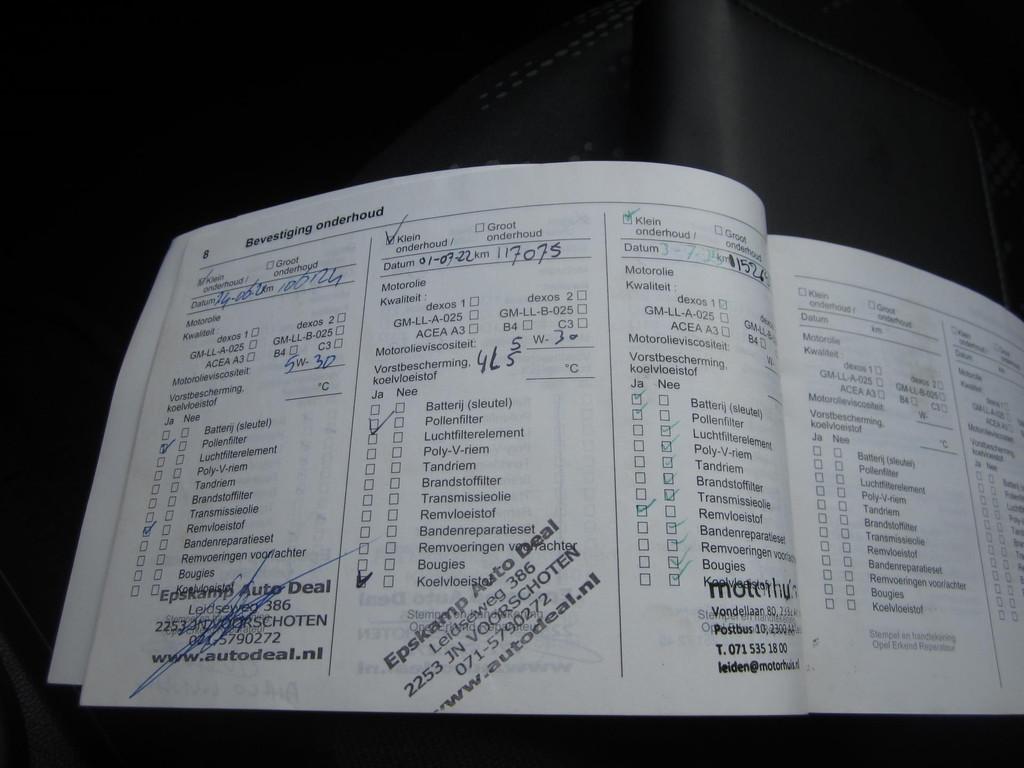 8 Bevestiging onderhoud
Klein onderhoud /
Groot onderhoud
Datum km
Motorolie
Kwaliteit :
dexos 1
dexos 2
GM-LL-A-025
GM-LL-B-025
ACEA A3
B4
C3
Motorolieviscositeit:
5 W- 30
Vorstbescherming, koelvloeistof
°C
Ja Nee
Batterij (sleutel)
Pollenfilter
Luchtfilterelement
Poly-V-riem
Tandriem
Brandstoffilter
Transmissieolie
Remvloeistof
Bandenreparatieset
Remvoeringen voor/achter
Bougies
Koelvloeistof
Epskamp Auto Deal
Leidseweg 386
2253 JN VOORSCHOTEN
071-5790272
www.autodeal.nl
Klein onderhoud /
Groot onderhoud
Datum 01-07-22 km 117075
Motorolie
Kwaliteit :
dexos 1
dexos 2
GM-LL-A-025
GM-LL-B-025
ACEA A3
B4
C3
Motorolieviscositeit:
5 W- 30
Vorstbescherming, koelvloeistof
4L5
°C
Ja Nee
Batterij (sleutel)
Pollenfilter
Luchtfilterelement
Poly-V-riem
Tandriem
Brandstoffilter
Transmissieolie
Remvloeistof
Bandenreparatieset
Remvoeringen voor/achter
Bougies
Koelvloeistof
Epskamp Auto Deal
Leidseweg 386
2253 JN VOORSCHOTEN
071-5790272
www.autodeal.nl
Klein onderhoud /
Groot onderhoud
Datum km
Motorolie
Kwaliteit :
dexos 1
GM-LL-A-025
ACEA A3
B4
Motorolieviscositeit:
Vorstbescherming, koelvloeistof
Ja Nee
Batterij (sleutel)
Pollenfilter
Luchtfilterelement
Poly-V-riem
Tandriem
Brandstoffilter
Transmissieolie
Remvloeistof
Bandenreparatieset
Remvoeringen voor/achter
Bougies
Koelvloeistof
motorhuis
Vondellaan 80,
Postbus 10, 2300
T. 071 535 18 00
leiden@motorhuis.nl
Klein onderhoud /
Groot onderhoud
Datum km
Motorolie
Kwaliteit :
dexos 1
dexos 2
GM-LL-A-025
GM-LL-B-025
ACEA A3
B4
C3
Motorolieviscositeit:
W-
Vorstbescherming, koelvloeistof
°C
Ja Nee
Batterij (sleutel)
Pollenfilter
Luchtfilterelement
Poly-V-riem
Tandriem
Brandstoffilter
Transmissieolie
Remvloeistof
Bandenreparatieset
Remvoeringen voor/achter
Bougies
Koelvloeistof
Stempel en handtekening
Opel Erkend Reparateur